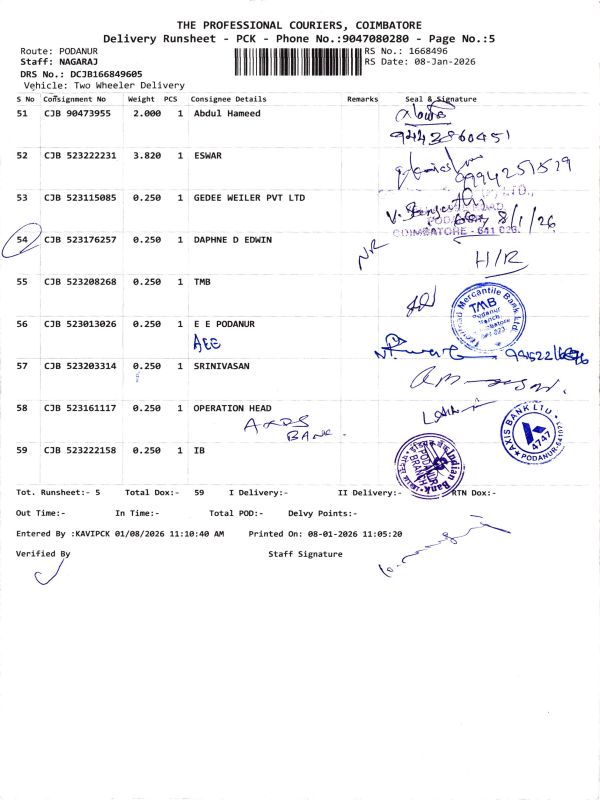 THE PROFESSIONAL COURIERS, COIMBATORE
Delivery Runsheet - PCK - Phone No.:9047080280 - Page No.:5
Route: PODANUR RS No.: 1668496
Staff: NAGARAJ RS Date: 08-Jan-2026
DRS No.: DCJB166849605
Vehicle: Two Wheeler Delivery
S No Consignment No Weight PCS Consignee Details Remarks Seal & Signature
51 CJB 90473955 2.000 1 Abdul Hameed
52 CJB 523222231 3.820 1 ESWAR
9994251519
53 CJB 523115085 0.250 1 GEDEE WEILER PVT LTD
8/1/26
COIMBATORE - 641 023.
54 CJB 523176257 0.250 1 DAPHNE D EDWIN NR
H/R
55 CJB 523208268 0.250 1 TMB
Mercantile Bank Ltd.
TMB
Podanur
56 CJB 523013026 0.250 1 E E PODANUR
AEE
57 CJB 523203314 0.250 1 SRINIVASAN
58 CJB 523161117 0.250 1 OPERATION HEAD
AXIS BANK LTD
4747
PODANUR-641023
BANK.
59 CJB 523222158 0.250 1 IB
Indian Bank
PODANUR
BRANCH
Tot. Runsheet:- 5 Total Dox:- 59 I Delivery:- II Delivery:- RTN Dox:-
Out Time:- In Time:- Total POD:- Delvy Points:-
Entered By :KAVIPCK 01/08/2026 11:10:40 AM Printed On: 08-01-2026 11:05:20
Verified By Staff Signature